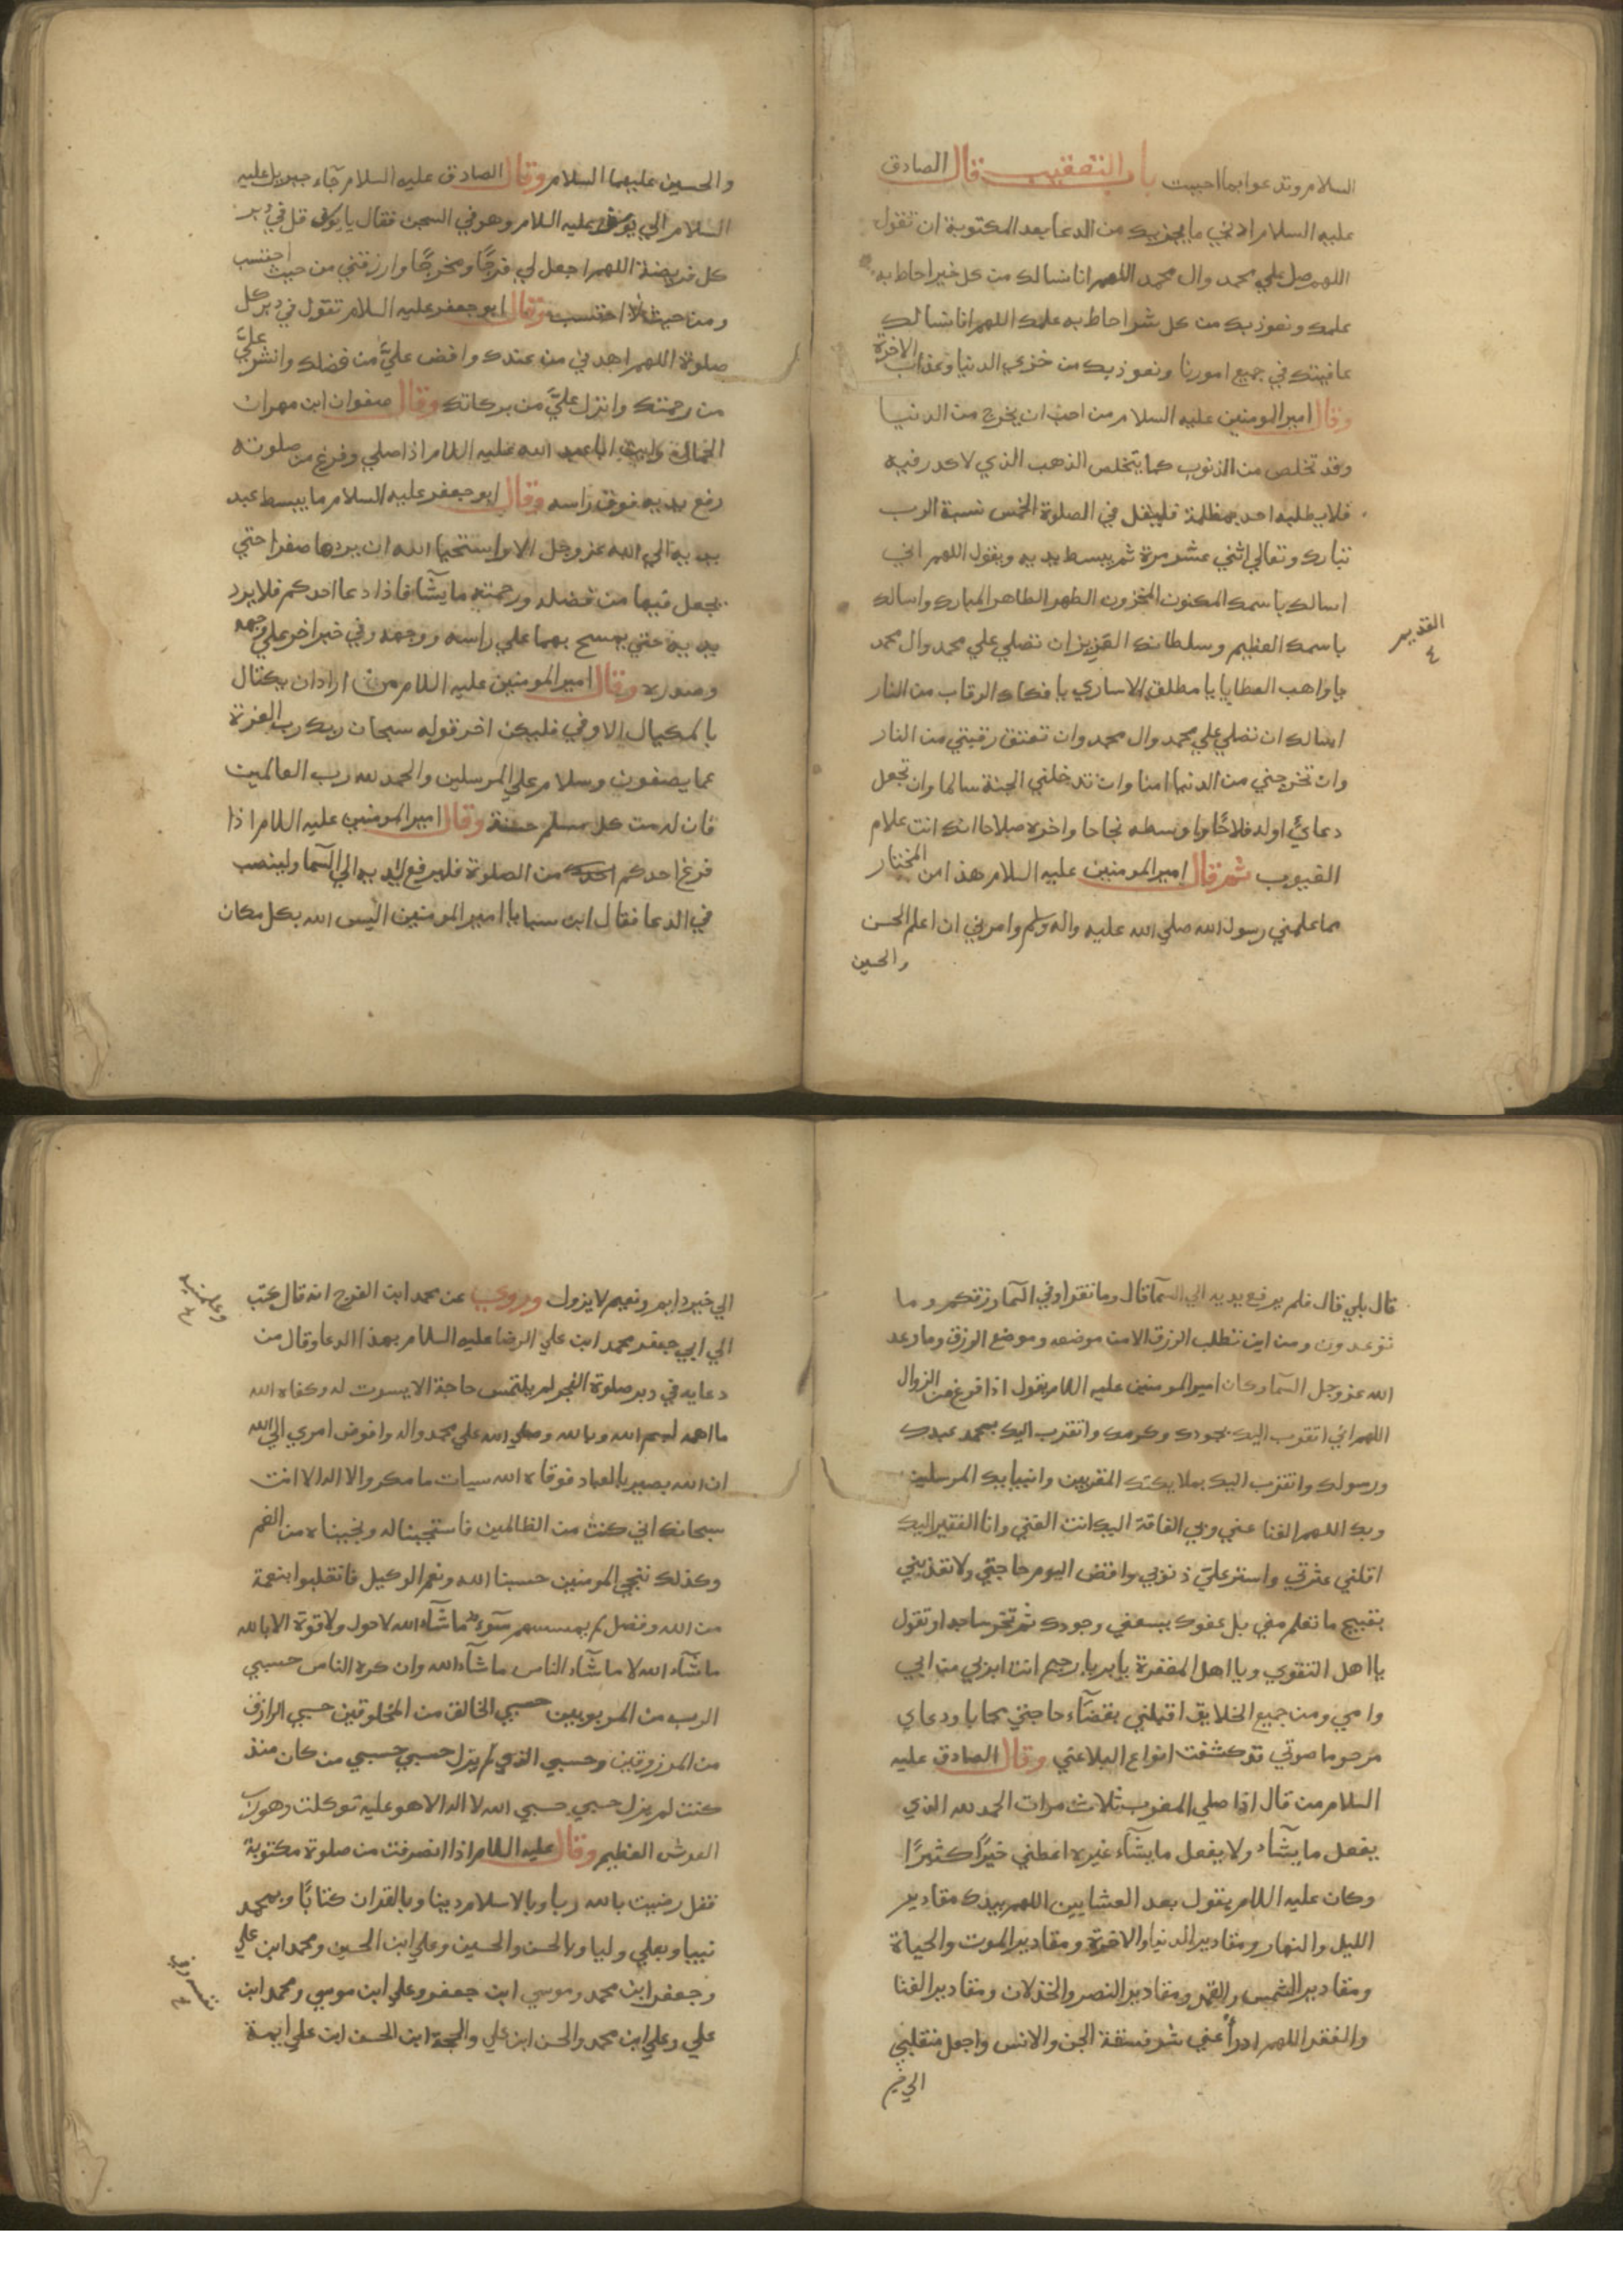 السلام وتدعوا بما احببت باب التعقيب قال الصادق
عليه السلام ادني ما يجزيك من الدعا بعد المكتوبة ان تقول
اللهم صل علي محمد وال محمد اللهم انا نسالك من كل خير احاط به
علمك ونعوذ بك من كل شر احاط به علمك اللهم انا نسالك
عافيتك في جميع امورنا ونعوذ بك من خزي الدنيا وعذاب الاخرة
وقال امير المومنين عليه السلام من احب ان يخرج من الدنيا
وقد تخلص من الذنوب كما يتخلص الذهب الذي لا كدر فيه
فلا يطلبه احد بمظلمة فليقل في الصلوة الخمس نسبة الرب
تبارك وتعالي اثني عشر مرة ثم يبسط يديه ويقول اللهم اني
اسالك باسمك المكنون المخزون الطهر الطاهر المبارك واسالك
باسمك العظيم وسلطانك القديم ان تصلي علي محمد وال محمد
القديم
يا واهب العطايا يا مطلق الاساري يا فكاك الرقاب من النار
اسالك ان تصلي علي محمد وال محمد وان تعتق رقبتي من النار
وان تخرجني من الدنيا امنا وان تدخلني الجنة سالما وان تجعل
دعائي اوله فلاحًا واوسطه نجاحا واخره صلاحا انك انت علام
الغيوب ثم قال امير المومنين عليه السلام هذا من المختار
مما علمني رسول الله صلي الله عليه واله وسلم وامرني ان اعلم الحسن
والحسين
والحسين عليهما السلام وقال الصادق عليه السلام جآء جبريل عليه
السلام الي يوسف عليه السلام وهو في السجن فقال يا يوسف قل في دبر
كل فريضة اللهم اجعل لي فرجًا ومخرجًا وارزقني من حيث احتسب
ومن حيث لا احتسب وقال ابو جعفر عليه السلام تقول في دبر كل
صلوة اللهم اهدني من عندك وافض عليَّ من فضلك وانشر عليَّ
من رحمتك وانزل عليَّ من بركاتك وقال صفوان ابن مهران
الجمال رايت ابا عبد الله عليه اللام اذا صلي وفرغ من صلوته
رفع يديه فوق راسه وقال ابو جعفر عليه السلام ما يبسط عبد
يديه الي الله عز وجل الا واستحيا الله ان يردها صفرا حتي
يجعل فيها من فضله ورحمته ما يشآ فاذا دعا احدكم فلا يرد
يديه حتي يمسح بهما علي راسه ووجهه وفي خبر اخر علي وجهه
وصدره وقال امير المومنين عليه اللام من اراد ان يكتال
بالمكيال الاوفي فليكن اخر قوله سبحان ربك رب العزة
عما يصفون وسلام علي المرسلين والحمد لله رب العالمين
فان له من كل مسلم حسنة وقال امير المومنين عليه اللام اذا
فرغ احدكم من الصلوة فليرفع يديه الي السمآ ولينصب
في الدعا فقال ابن سبا يا امير المومنين اليس الله بكل مكان
قال بلي قال فلم يرفع يديه الي السمآ قال وما تقرا وفي السمآ رزقكم وما
توعدون ومن اين تطلب الرزق الا من موضعه وموضع الرزق وما وعد
الله عز وجل السمآ وكان امير المومنين عليه اللام يقول اذا فرغ من الزوال
اللهم اني اتقرب اليك بجودك وكرمك واتقرب اليك بمحمد عبدك
ورسولك واتقرب اليك بملايكتك المقربين وانبيايك المرسلين
وبك اللهم الغنا عني وبي الفاقة اليك انت الغني وانا الفقير اليك
اقلني عثرتي واستر علي ذنوبي واقض اليوم حاجتي ولا تعذبني
بقبيح ما تعلم مني بل عفوك يسعني وجودك ثم تخر ساجدا وتقول
يا اهل التقوي ويا اهل المغفرة يا بر يا رحيم انت ابر بي من ابي
وامي ومن جميع الخلايق اقبلني بقضآء حاجتي مجابا ودعاي
مرحوما صوتي قد كشفت انواع البلا عني وقال الصادق عليه
السلام من قال اذا صلي المغرب ثلاث مرات الحمد لله الذي
يفعل ما يشآء ولا يفعل ما يشآء غيره اعطني خيرًا كثيرًا
وكان عليه اللام يقول بعد العشايين اللهم بيدك مقادير
الليل والنهار ومقادير الدنيا والاخرة ومقادير الموت والحياة
ومقادير الشمس والقمر ومقادير النصر والخذلان ومقادير الغنا
والفقر اللهم ادرأ عني شر فسقة الجن والانس واجعل منقلبي
الي خير
الي خير دايم ونعيم لا يزول وروي عن محمد ابن الفرج انه قال كتب
الي ابي جعفر محمد ابن علي الرضا عليه السلام بهذا الدعا وقال من
دعا به في دبر صلوة الفجر لم يلتمس حاجة الا يسرت له وكفاه الله
ما اهمه بسم الله وبالله وصلي الله علي محمد واله وافوض امري الي الله
ان الله بصير بالعباد فوقاه الله سيات ما مكروا لا اله الا انت
سبحانك اني كنت من الظالمين فاستجبنا له ونجيناه من الغم
وكذلك ننجي المومنين حسبنا الله ونعم الوكيل فانقلبوا بنعمة
من الله وفضل لم يمسسهم سوء ما شآء الله لا حول ولا قوة الا بالله
ما شآء الله لا ما شآء الناس ما شآء الله وان كره الناس حسبي
الرب من المربوبين حسبي الخالق من المخلوقين حسبي الرازق
من المرزوقين وحسبي الذي لم يزل حسبي حسبي من كان منذ
كنت لم يزل حسبي حسبي الله لا اله الا هو عليه توكلت وهو رب
العرش العظيم وقال عليه اللام اذا انصرفت من صلوة مكتوبة
فقل رضيت بالله ربا وبالاسلام دينا وبالقران كتابًا وبمحمد
نبيا وبعلي وليا وبالحسن والحسين وعلي ابن الحسين ومحمد ابن علي
وجعفر ابن محمد وموسي ابن جعفر وعلي ابن موسي ومحمد ابن
علي وعلي ابن محمد والحسن ابن علي والحجة ابن الحسن ابن علي ايمة